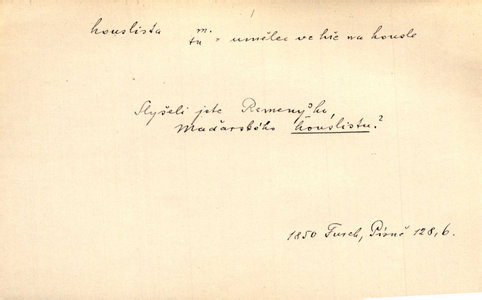 houslista m. = umělec ve hře na housle
tu
Slyšeli jste Remenyho,
maďarského houslistu?
1850 Tusch, Písně 128, 6.